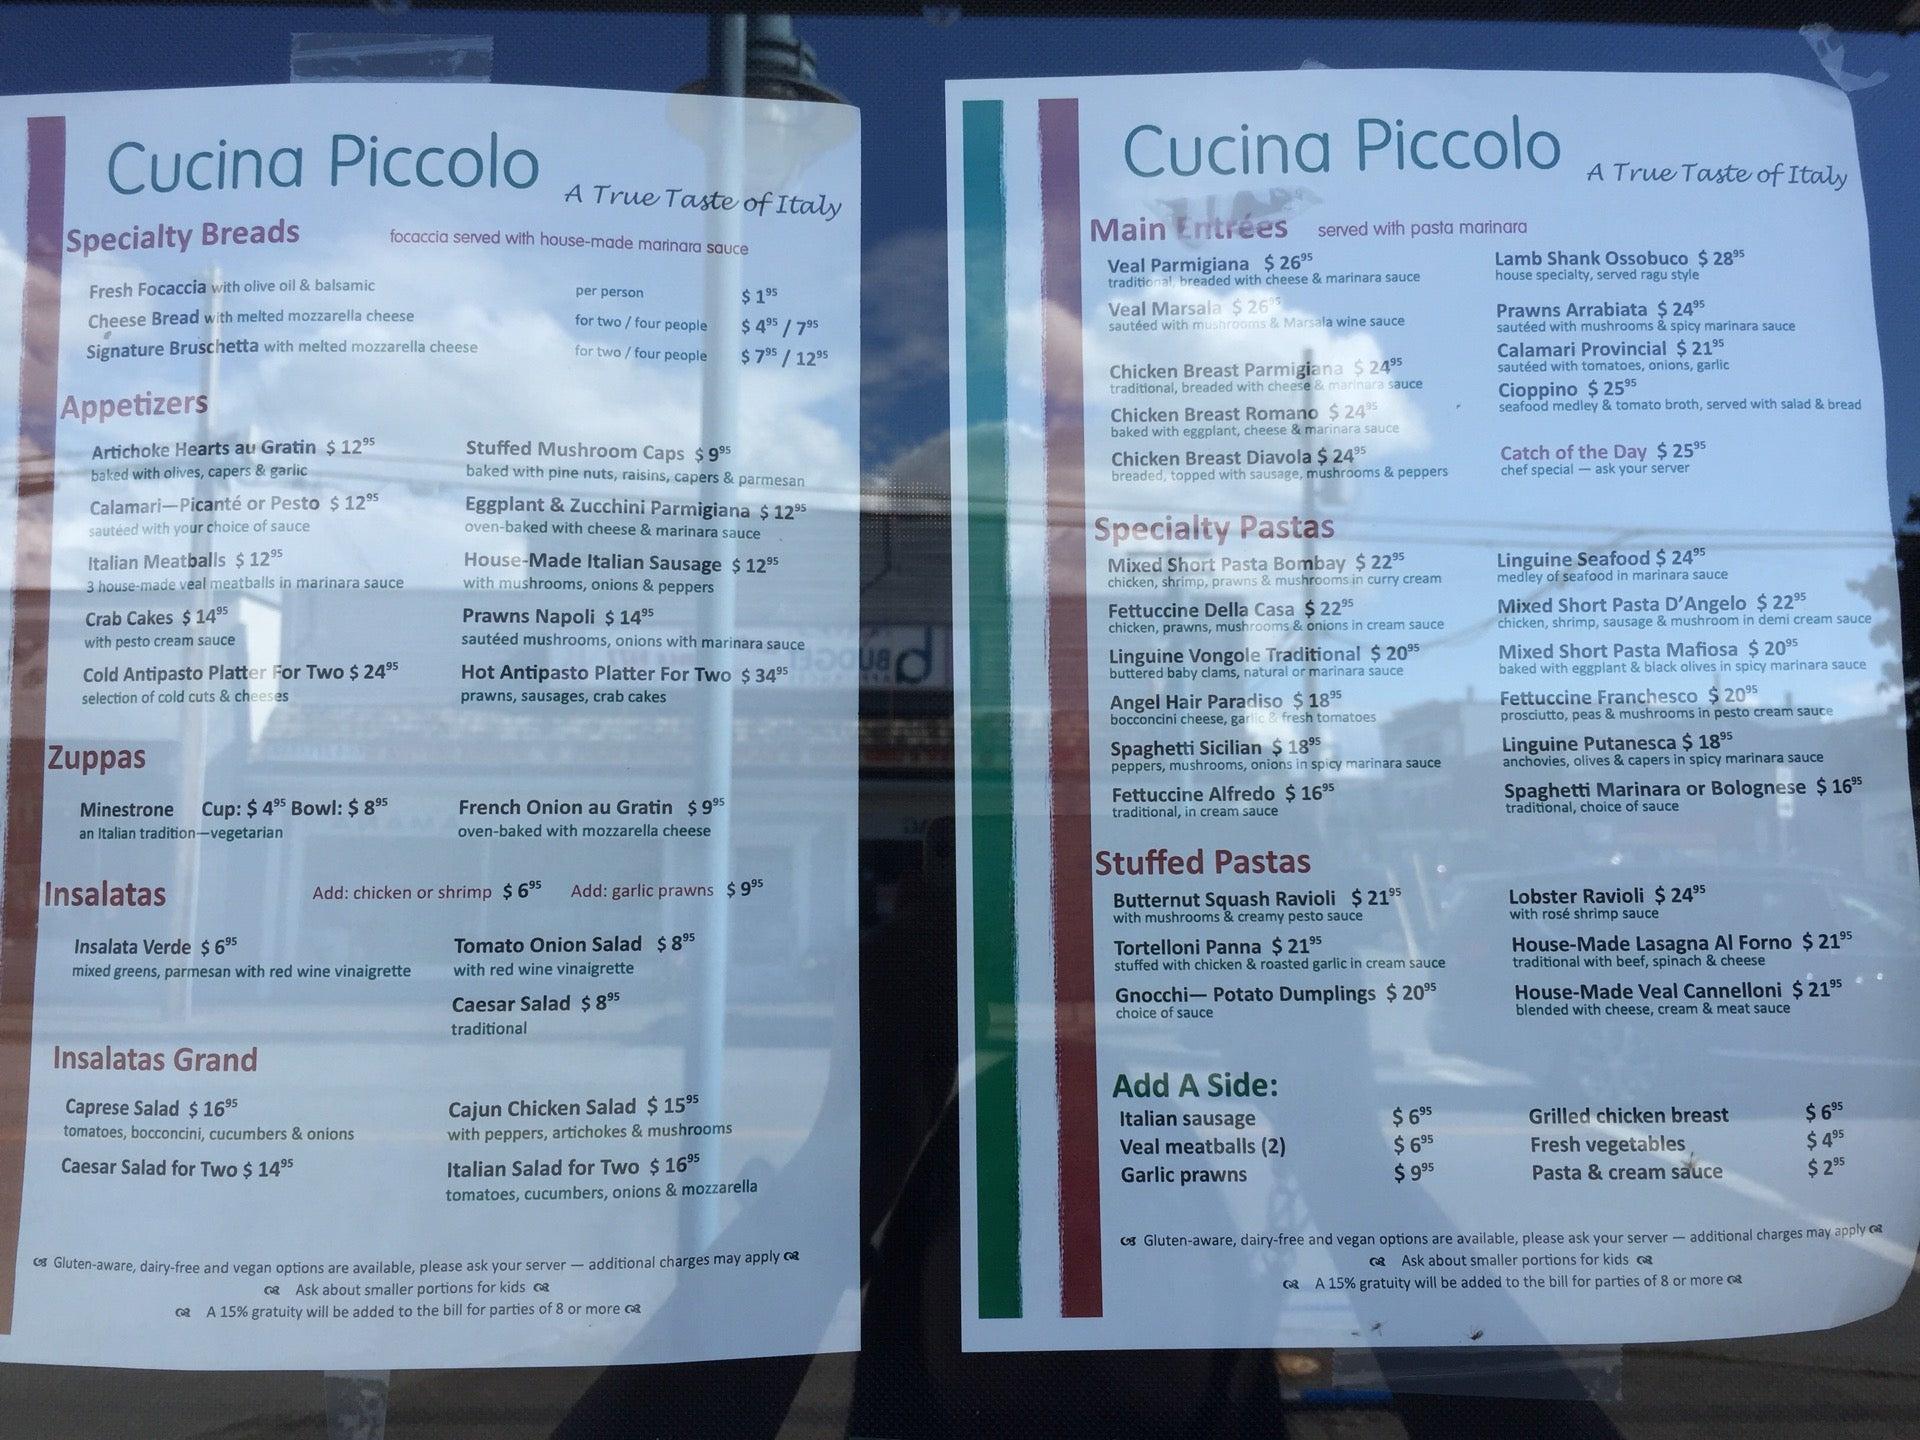 Cucina Piccolo
A True Taste of Italy
Specialty Breads focaccia served with house-made marinara sauce
Fresh Focaccia with olive oil & balsamic per person $ 1⁹⁵
Cheese Bread with melted mozzarella cheese for two / four people $ 4⁹⁵ / 7⁹⁵
Signature Bruschetta with melted mozzarella cheese for two / four people $ 7⁹⁵ / 12⁹⁵
Appetizers
Artichoke Hearts au Gratin $ 12⁹⁵
baked with olives, capers & garlic
Calamari—Picanté or Pesto $ 12⁹⁵
sautéed with your choice of sauce
Italian Meatballs $ 12⁹⁵
3 house-made veal meatballs in marinara sauce
Crab Cakes $ 14⁹⁵
with pesto cream sauce
Cold Antipasto Platter For Two $ 24⁹⁵
selection of cold cuts & cheeses
Stuffed Mushroom Caps $ 9⁹⁵
baked with pine nuts, raisins, capers & parmesan
Eggplant & Zucchini Parmigiana $ 12⁹⁵
oven-baked with cheese & marinara sauce
House-Made Italian Sausage $ 12⁹⁵
with mushrooms, onions & peppers
Prawns Napoli $ 14⁹⁵
sautéed mushrooms, onions with marinara sauce
Hot Antipasto Platter For Two $ 34⁹⁵
prawns, sausages, crab cakes
Zuppas
Minestrone Cup: $ 4⁹⁵ Bowl: $ 8⁹⁵
an Italian tradition—vegetarian
French Onion au Gratin $ 9⁹⁵
oven-baked with mozzarella cheese
Insalatas Add: chicken or shrimp $ 6⁹⁵ Add: garlic prawns $ 9⁹⁵
Insalata Verde $ 6⁹⁵
mixed greens, parmesan with red wine vinaigrette
Tomato Onion Salad $ 8⁹⁵
with red wine vinaigrette
Caesar Salad $ 8⁹⁵
traditional
Insalatas Grand
Caprese Salad $ 16⁹⁵
tomatoes, bocconcini, cucumbers & onions
Caesar Salad for Two $ 14⁹⁵
Cajun Chicken Salad $ 15⁹⁵
with peppers, artichokes & mushrooms
Italian Salad for Two $ 16⁹⁵
tomatoes, cucumbers, onions & mozzarella
Gluten-aware, dairy-free and vegan options are available, please ask your server — additional charges may apply
Ask about smaller portions for kids
A 15% gratuity will be added to the bill for parties of 8 or more
Cucina Piccolo
A True Taste of Italy
Main Entrées served with pasta marinara
Veal Parmigiana $ 26⁹⁵
traditional, breaded with cheese & marinara sauce
Veal Marsala $ 26⁹⁵
sautéed with mushrooms & Marsala wine sauce
Chicken Breast Parmigiana $ 24⁹⁵
traditional, breaded with cheese & marinara sauce
Chicken Breast Romano $ 24⁹⁵
baked with eggplant, cheese & marinara sauce
Chicken Breast Diavola $ 24⁹⁵
breaded, topped with sausage, mushrooms & peppers
Lamb Shank Ossobuco $ 28⁹⁵
house specialty, served ragu style
Prawns Arrabiata $ 24⁹⁵
sautéed with mushrooms & spicy marinara sauce
Calamari Provincial $ 21⁹⁵
sautéed with tomatoes, onions, garlic
Cioppino $ 25⁹⁵
seafood medley & tomato broth, served with salad & bread
Catch of the Day $ 25⁹⁵
chef special — ask your server
Specialty Pastas
Mixed Short Pasta Bombay $ 22⁹⁵
chicken, shrimp, prawns & mushrooms in curry cream
Fettuccine Della Casa $ 22⁹⁵
chicken, prawns, mushrooms & onions in cream sauce
Linguine Vongole Traditional $ 20⁹⁵
buttered baby clams, natural or marinara sauce
Angel Hair Paradiso $ 18⁹⁵
bocconcini cheese, garlic & fresh tomatoes
Spaghetti Sicilian $ 18⁹⁵
peppers, mushrooms, onions in spicy marinara sauce
Fettuccine Alfredo $ 16⁹⁵
traditional, in cream sauce
Linguine Seafood $ 24⁹⁵
medley of seafood in marinara sauce
Mixed Short Pasta D'Angelo $ 22⁹⁵
chicken, shrimp, sausage & mushroom in demi cream sauce
Mixed Short Pasta Mafiosa $ 20⁹⁵
baked with eggplant & black olives in spicy marinara sauce
Fettuccine Franchesco $ 20⁹⁵
prosciutto, peas & mushrooms in pesto cream sauce
Linguine Putanesca $ 18⁹⁵
anchovies, olives & capers in spicy marinara sauce
Spaghetti Marinara or Bolognese $ 16⁹⁵
traditional, choice of sauce
Stuffed Pastas
Butternut Squash Ravioli $ 21⁹⁵
with mushrooms & creamy pesto sauce
Tortelloni Panna $ 21⁹⁵
stuffed with chicken & roasted garlic in cream sauce
Gnocchi— Potato Dumplings $ 20⁹⁵
choice of sauce
Lobster Ravioli $ 24⁹⁵
with rosé shrimp sauce
House-Made Lasagna Al Forno $ 21⁹⁵
traditional with beef, spinach & cheese
House-Made Veal Cannelloni $ 21⁹⁵
blended with cheese, cream & meat sauce
Add A Side:
Italian sausage $ 6⁹⁵
Veal meatballs (2) $ 6⁹⁵
Garlic prawns $ 9⁹⁵
Grilled chicken breast $ 6⁹⁵
Fresh vegetables $ 4⁹⁵
Pasta & cream sauce $ 2⁹⁵
Gluten-aware, dairy-free and vegan options are available, please ask your server — additional charges may apply
Ask about smaller portions for kids
A 15% gratuity will be added to the bill for parties of 8 or more